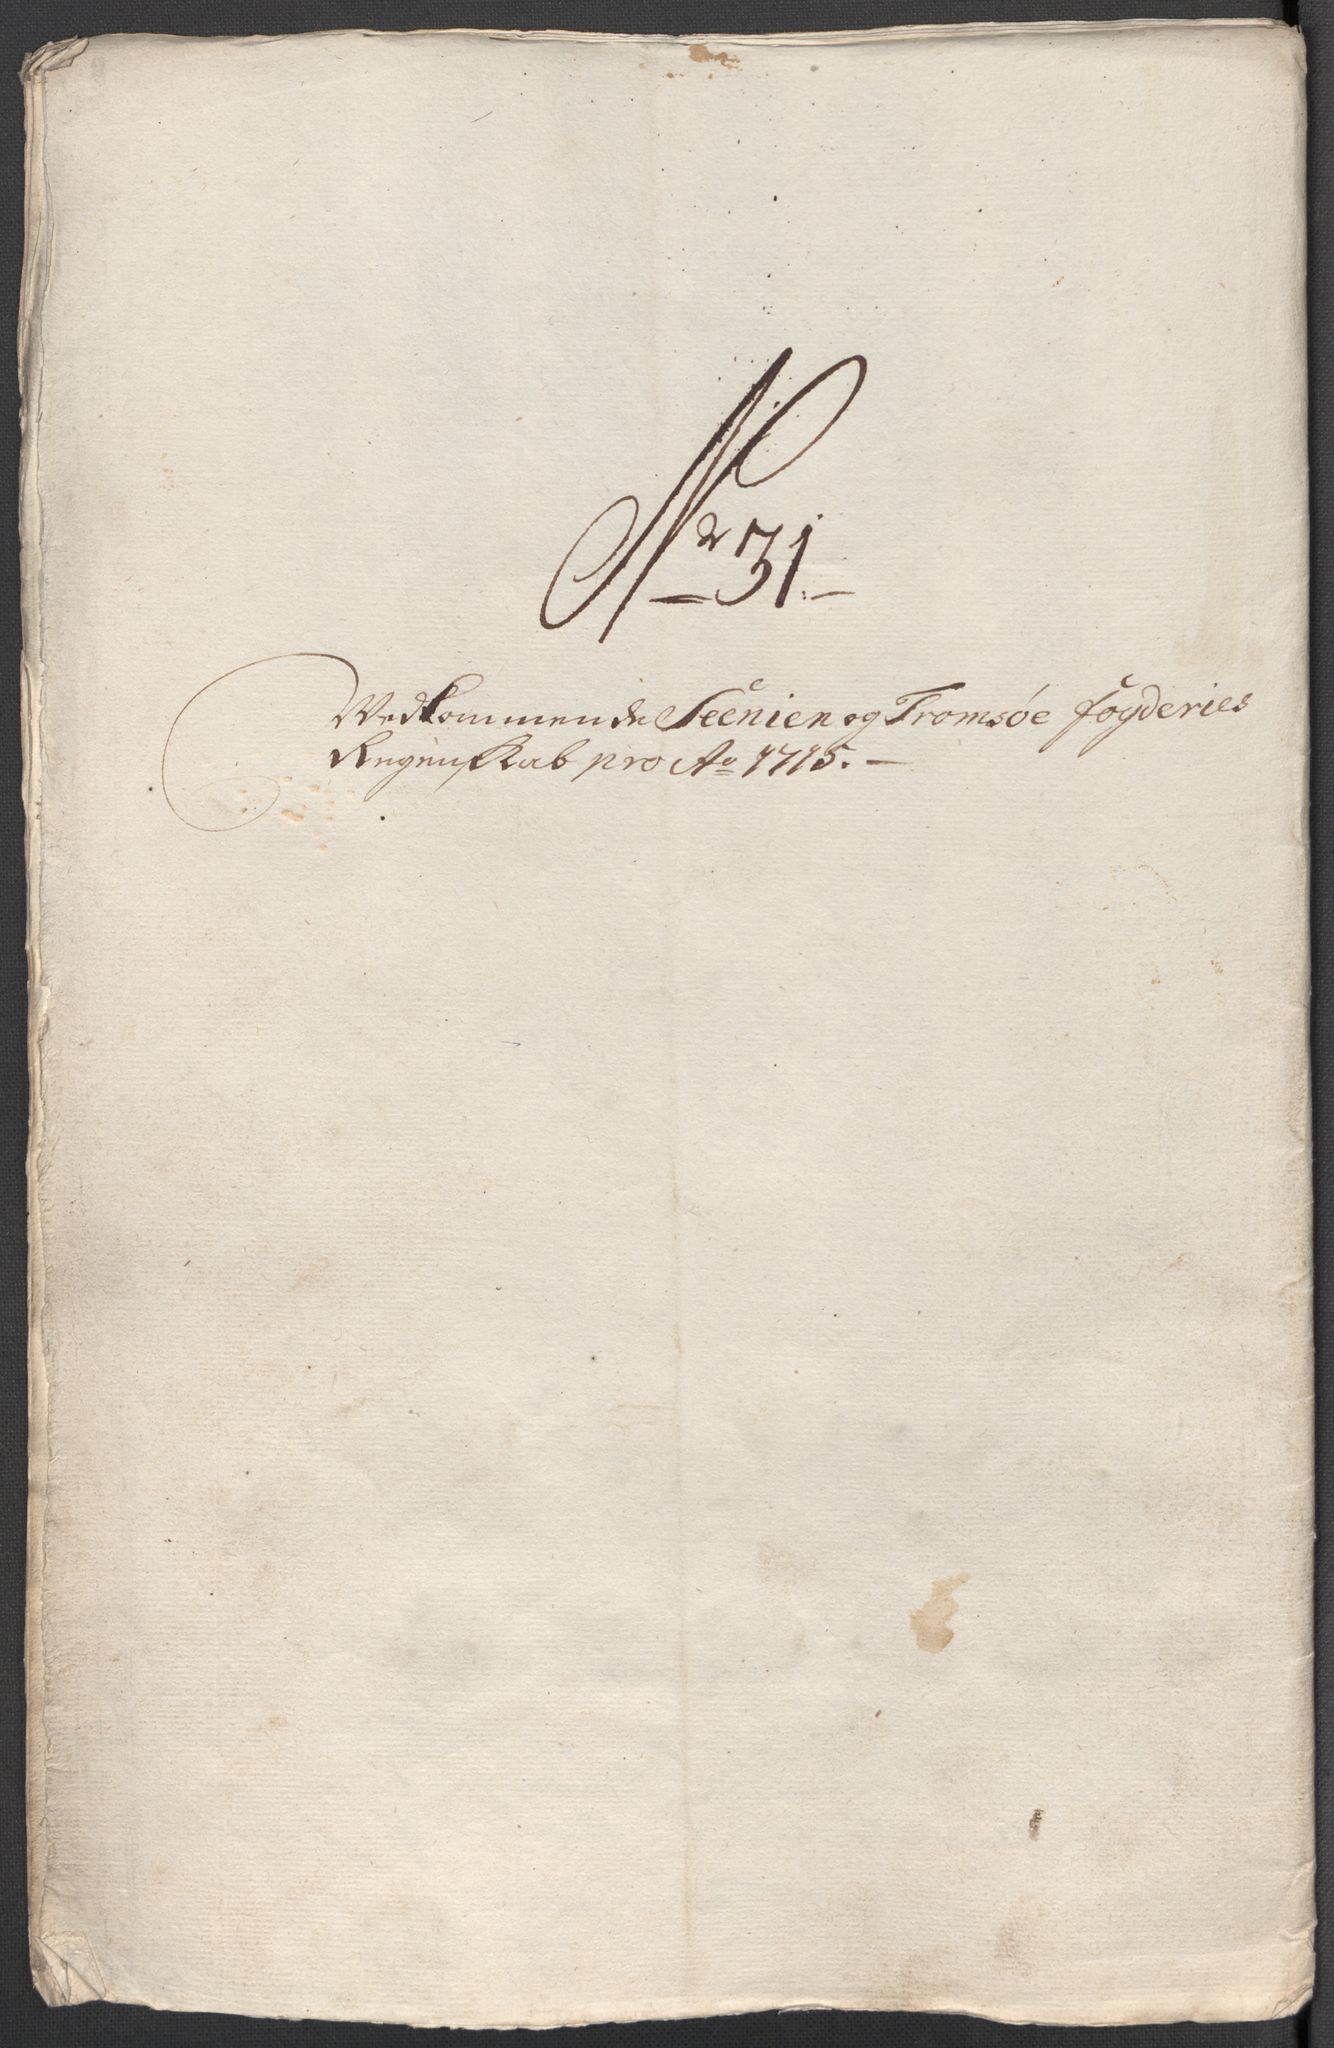 Nr 31.
Vedkommende Seenien og Tromsøe fogderies
Regenskab pro Ao 1715.